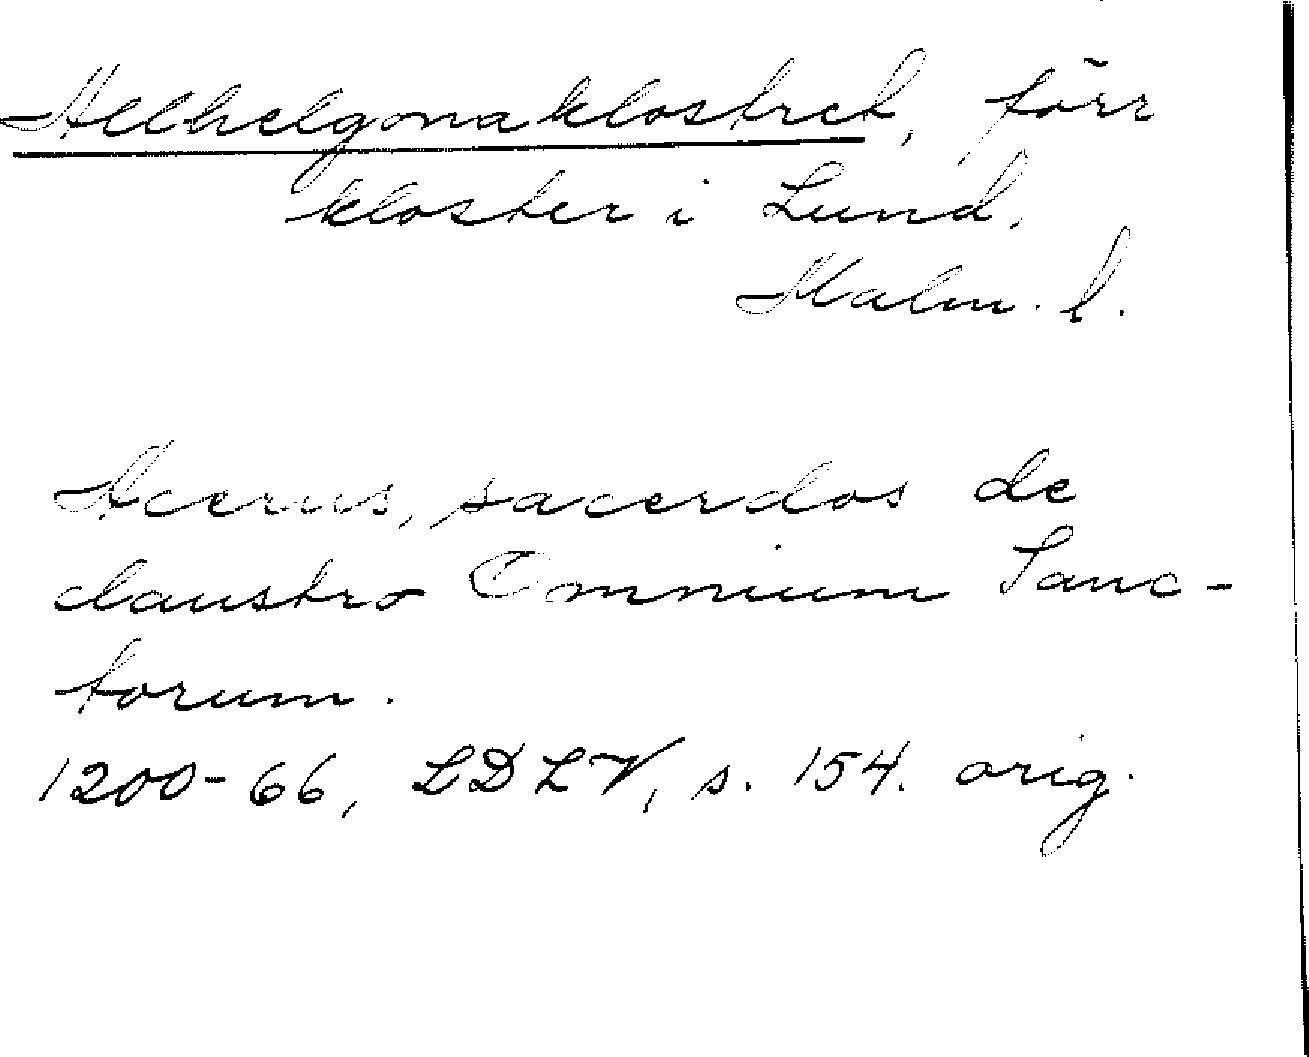 Allhelgonaklostret, förr
kloster i Lund,
Malm. l.
Acerus, sacerdos de
claustro Omnium Sanc-
torum.
1200-66, LDLV, s. 154. orig.